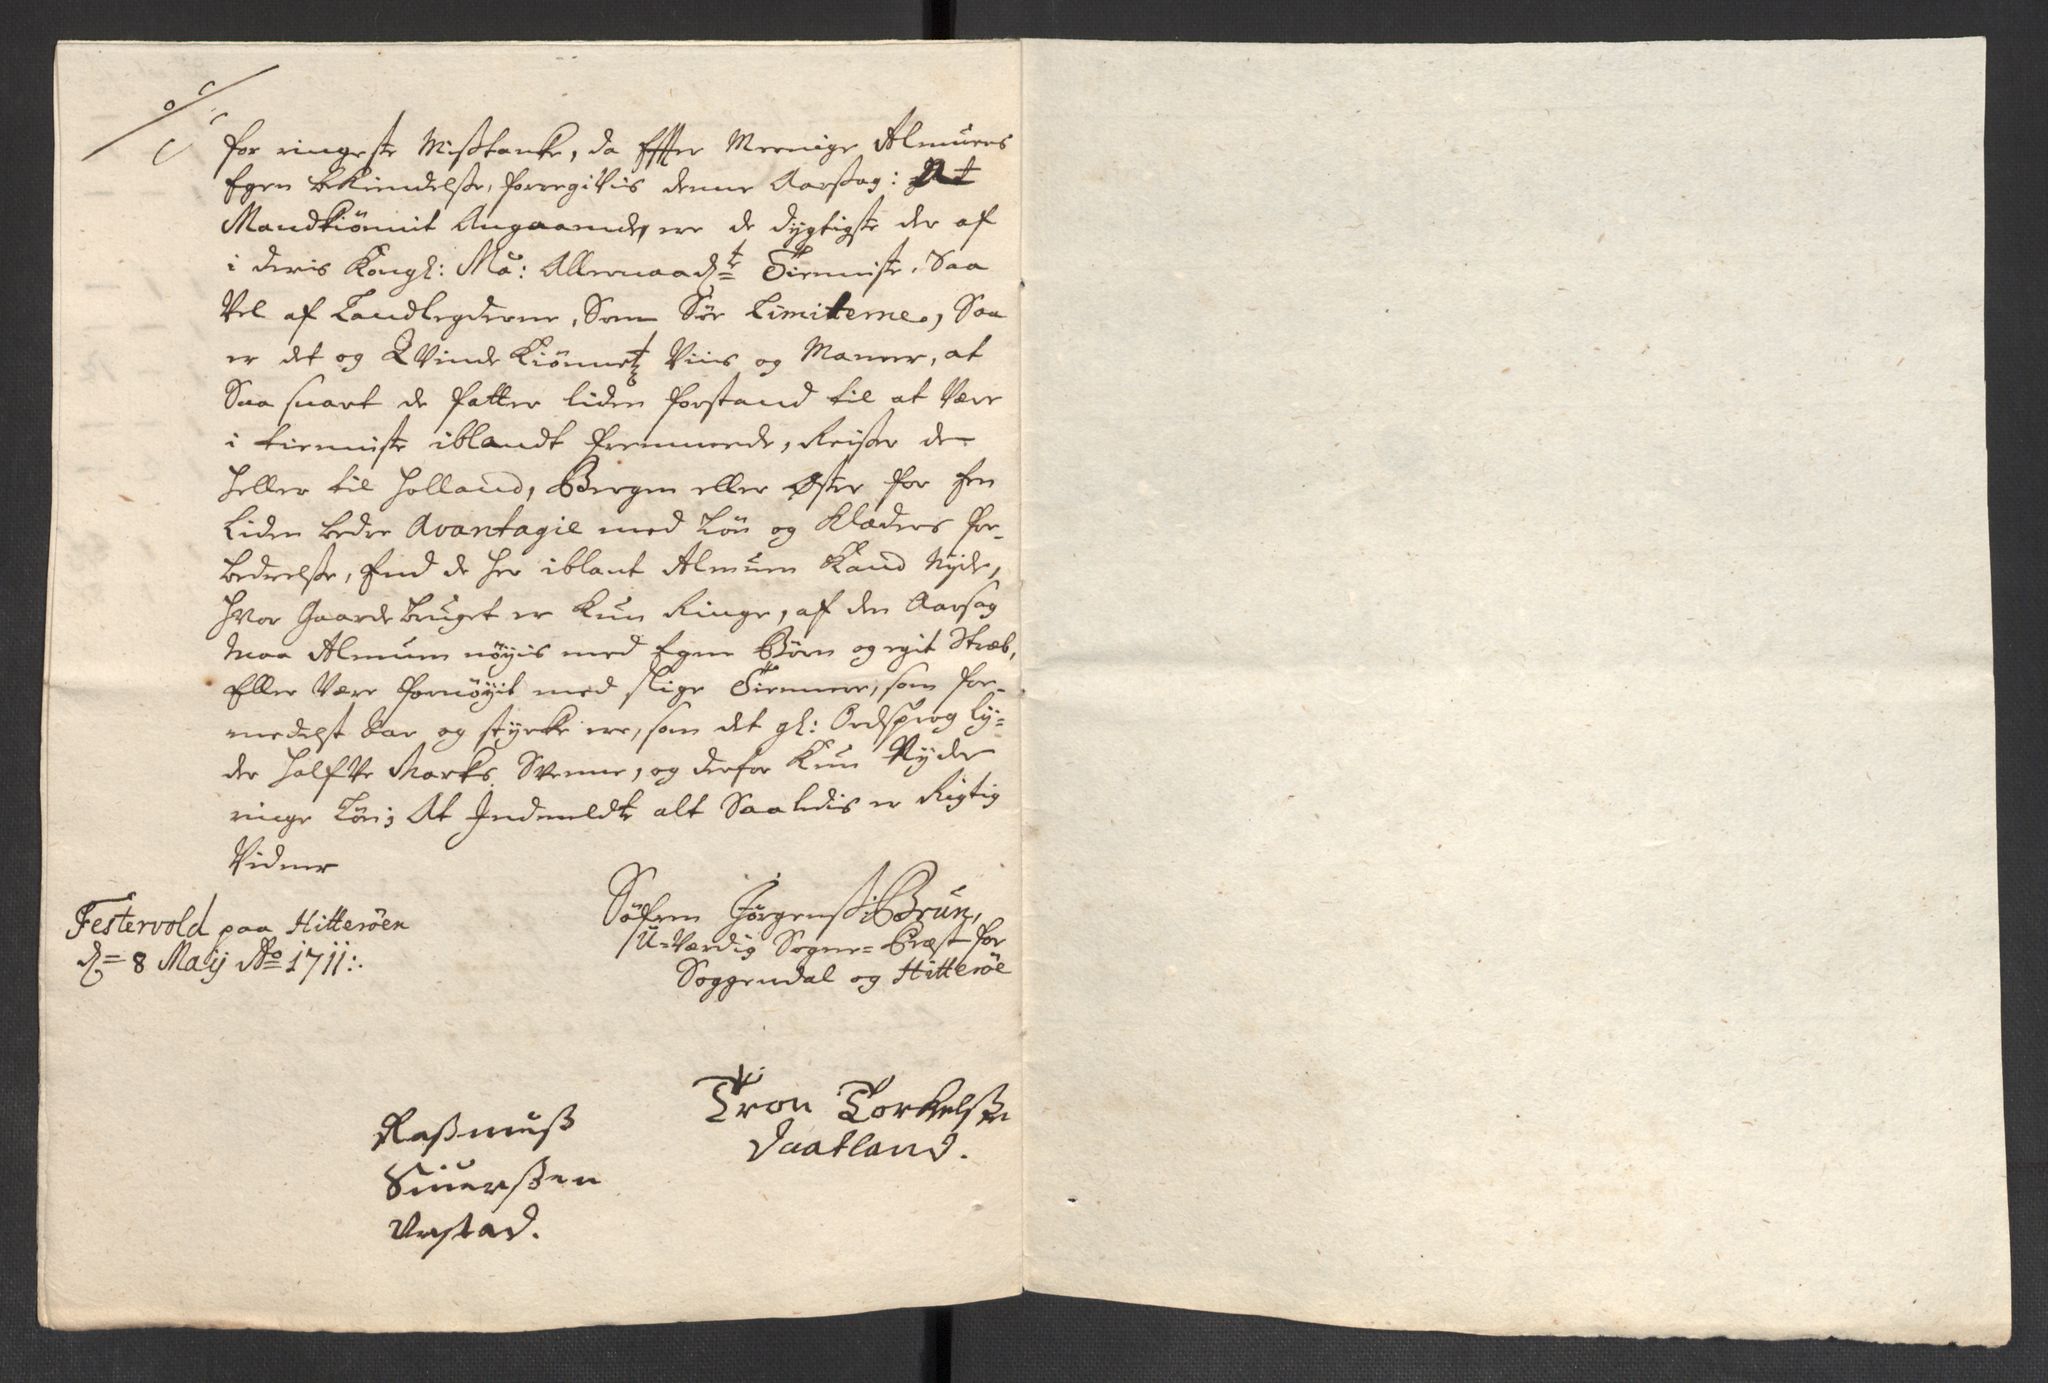 for ringeste Mißtanke, da Effter Meenige Almues
Egen bekiendelse, foregifvis denne Aarsag: At
Mandkiönnit Angaaende, ere de dygtigste der af
i deris Kongl: Ma: Allernaad:te Tienniste, Saa
Vel af Landlegderne, Som Söe Limiterne, Saa
er det og QVinde Kiönnetz Viis og Maneer, at
Saa snart de fatter liden forstand til at Være
i tienniste iblandt fremmede, Reiser de
heller til Holland, Bergen eller Øster for Een
Liden bedre Avantagie med Lön og Klæders for-
bedrelse, End de her iblant Almuen Kand Nyde,
hvor Gaarde bruget er Kun Ringe, af den Aarsag
maa Almuen nöyis med Egne Börn og egit Stræb,
Eller Være fornöyit med slige Tiennere, som for-
medelst Aar og styrke ere, som det gl: Ordsprog ly-
der halfVe Marks Svenne, og derfor Kun Nyder
ringe Lön; At Indmeldte alt Saaledis er Rigtig
Vidner
Festervold paa Hitteröen
d= 8 Maij Ao 1711:.
Söfren Jörgenss: Brun,
U-Værdig Sogne-Præst for
Soggendal og Hitteröe
Tron Torkelßen
Daatland.
Raßmuß
Siuerßen
Urstad.